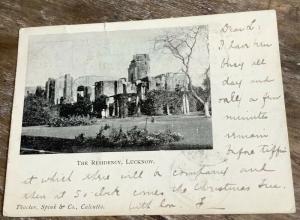 Dear L.
I have been
they all
day and
only a few
minutes
remain
THE RESIDENCY, LUCKNOW.
before tiffin
at which there will be company and
then at 5 o clock comes the Christmas tree.
Thacker, Spink & Co., Calcutta.
With love